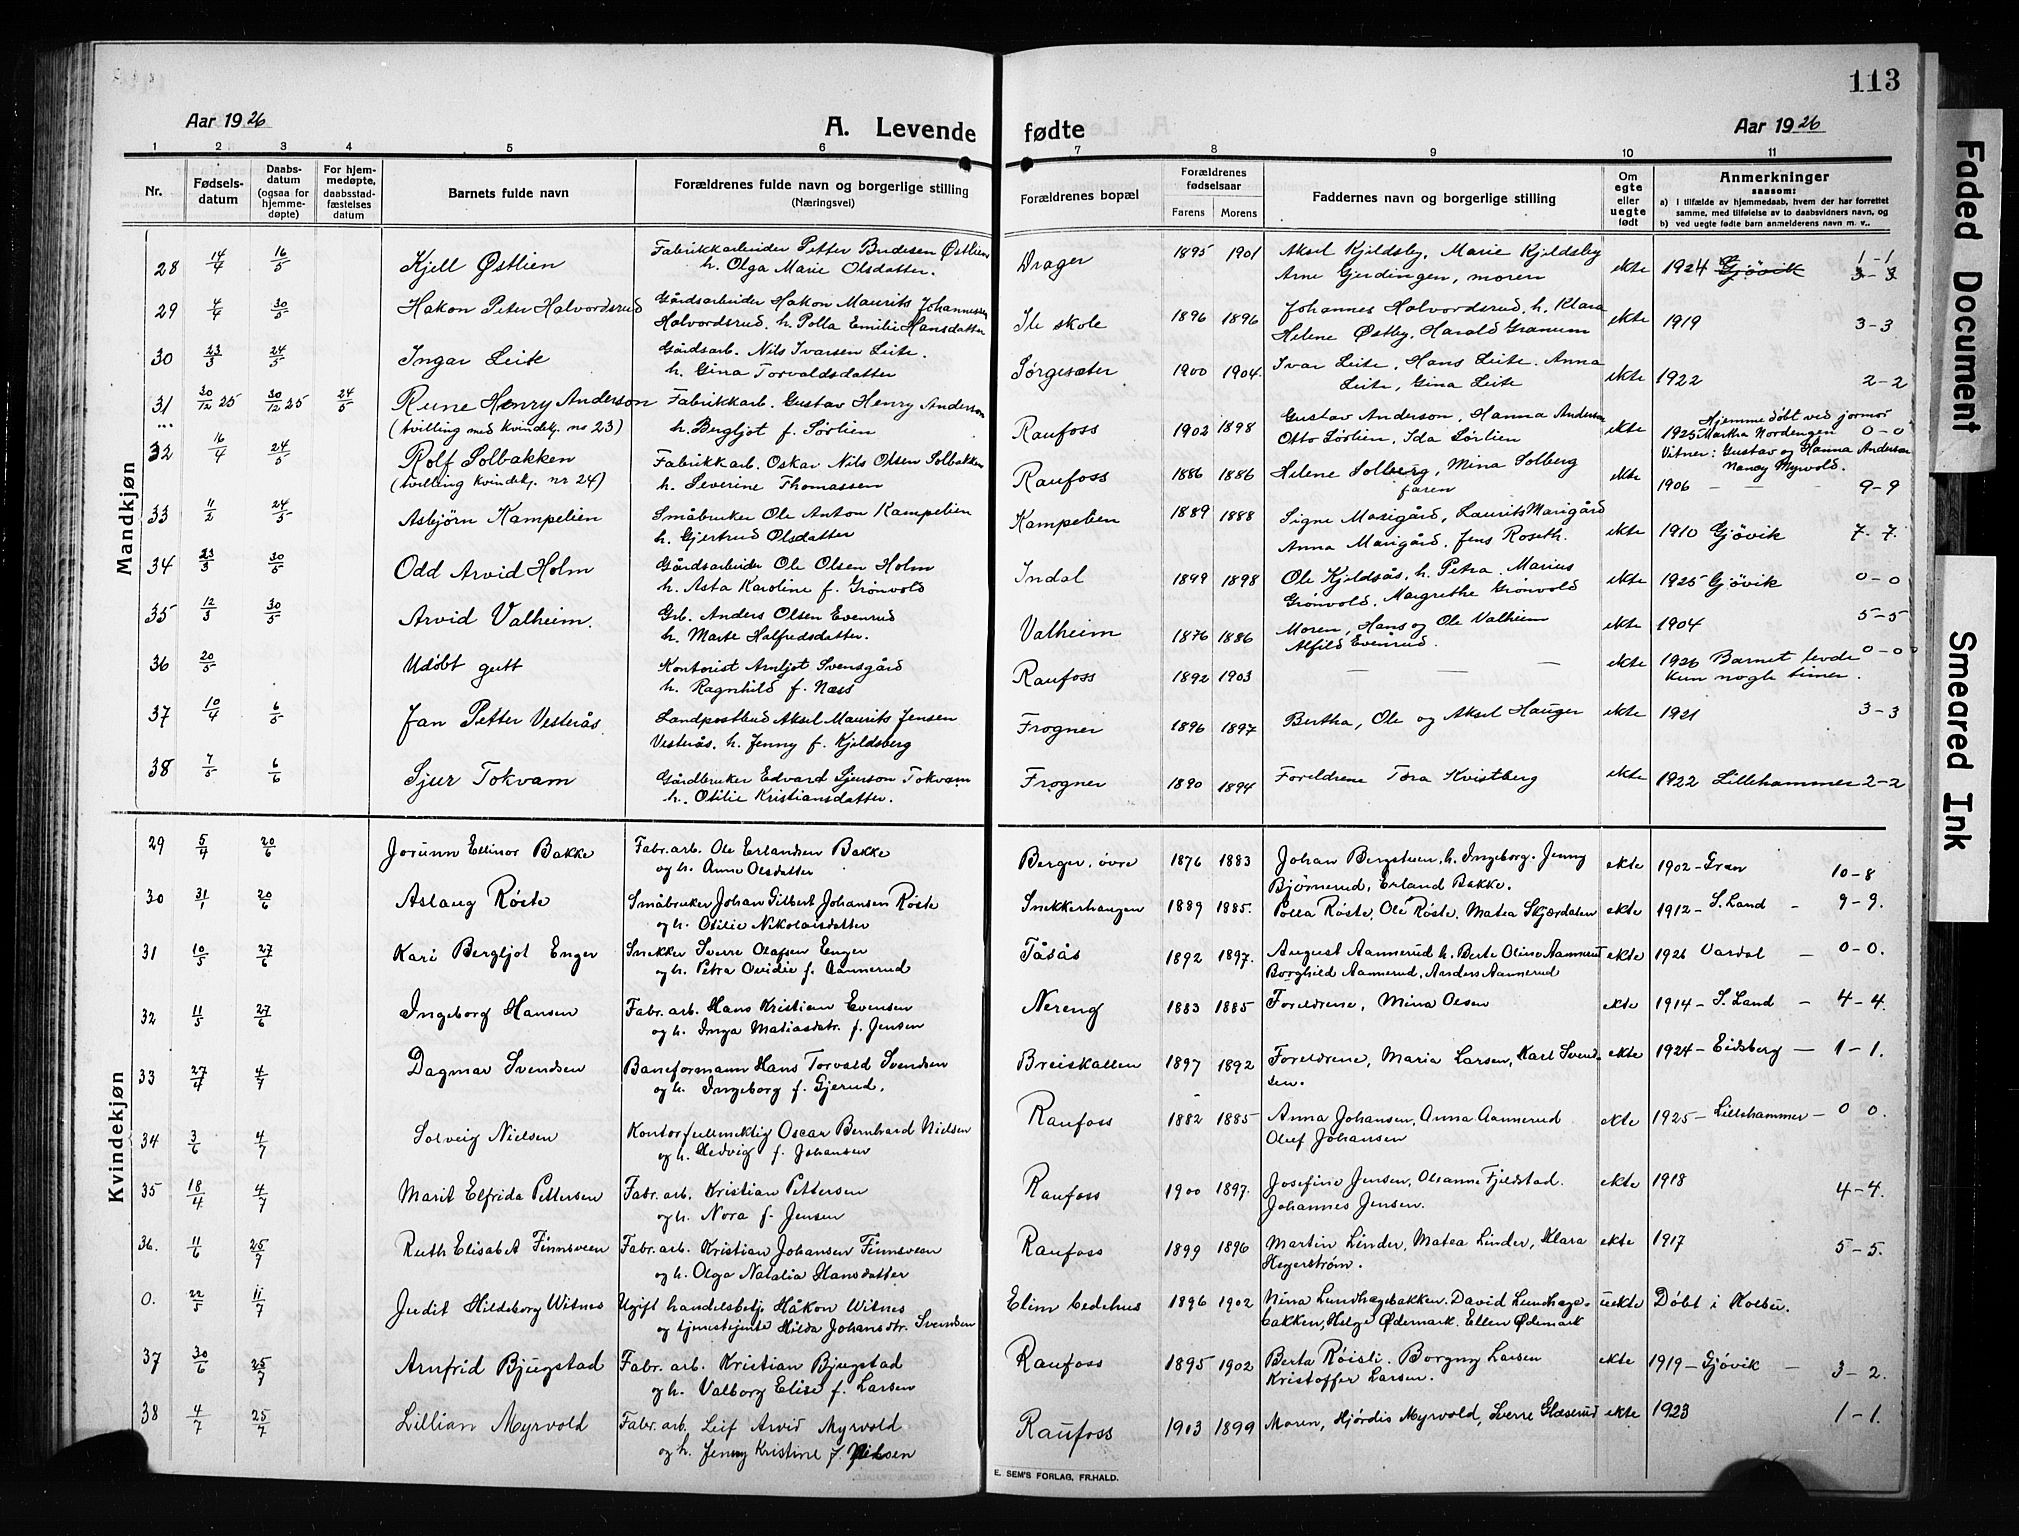 113
Aar 1926 A. Levende fødte Aar 1926
1 2 3 4 5 6 7 8 9 10 11
Nr. Fødsels-datum Daabs-datum (ogsaa for hjemme-døpte) For hjem-medøpte, daabsstad-fæstelses datum Barnets fulde navn Forældrenes fulde navn og borgerlige stilling (Næringsvei) Forældrenes bopæl Forældrenes fødselsaar Farens Morens Faddernes navn og borgerlige stilling Om egte eller uegte født Anmerkninger saasom:
a) I tilfælde av hjemmedaab, hvem der har forrettet samme, med tilføielse av to daabsvidners navn, og
b) ved uegte fødte barn anmelderens navn m. v..
Mandkjøn
28 14/4 16/5 Kjell Østlien Fabrikkarbeider Petter Budesen Østlien Drager 1895 1901 Aksel Kjeldsby, Marie Kjeldsby ekte 1924 Gjøvik 1-1
h. Olga Marie Olsdatter. Arne Gjerdingen, moren 3-3
29 4/4 30/5 Hakon Peter Halvordsrud Gårdsarbeider Hakon Maurits Johannessen Ile skole 1896 1896 Johannes Halvordsrud, h. Klara ekte 1919 3-3
Halvordsrud, h. Polla Emilie Hansdatter Helene Østby, Harald Granum
30 23/3 24/5 Ingar Leite Gårdsarb. Nils Ivarsen Leite. Sørgesæter 1900 1904 Ivar Leite, Hans Leite. Anna ekte 1922 2-2
h. Gina Torvaldsdatter Leite, Gina Leite
31 30/12 25 30/12 25 24/5 Rune Henry Anderson Fabrikkarb. Gustav Henry Anderson Raufoss 1902 1898 Gustav Anderson, Hanna Anderson ekte 1925 Hjemmedøbt ved jormor Martha Nordengen 0-0
(tvilling med kvindekj. no 23) h. Bergljot f. Sørlien Otto Sørlien, Ida Sørlien Vitner: Gustav og Hanna Anderson
32 16/4 24/5 Rolf Solbakken Fabrikkarb. Oskar Nils Olsen Solbakken Raufoss 1886 1886 Helene Solberg, Mina Solberg ekte Nancy Myrvold.
(tvilling kvindekj. nr 24) h. Severine Thomassen faren 1906 9-9
33 11/2 24/5 Asbjörn Kampelien Småbruker Ole Anton Kampelien Kampelien 1889 1888 Signe Marigård, Laurits Marigård ekte 1910 Gjøvik 7-7.
h. Gjertrud Olsdatter Anna Marigård. Jens Roseth.
34 23/3 30/5 Odd Arvid Holm Gårdsarbeider Ole Olsen Holm Indal 1899 1898 Ole Kjeldsås, h. Petra. Marius ekte 1925 Gjøvik 0-0
h. Asta Karoline f. Grønvold Grønvold. Margrethe Grønvold
35 12/3 30/5 Arvid Valheim. Grb. Anders Olsen Evenrud Valheim 1876 1886 Moren, Hans og Ole Valheim ekte 1904 5-5
h. Marte Halfredsdatter. Alfild Evenrud.
36 20/5 Udøbt gutt Kontorist Arnljot Svensgård Raufoss 1892 1903 — — — ekte 1926 Barnet levde 0-0
h. Ragnhild f. Næss kun nogle timer.
37 10/4 6/5 Jan Petter Vesterås Landpostbud Aksel Maurits Jensen Frogner 1896 1897 Bertha, Ole og Aksel Hauger ekte 1921 3-3
Vesterås. h. Jenny f. Kjeldsberg
38 7/5 6/6 Sjur Tokvam Gårdbruker Edvard Sjurson Tokvam Frogner 1890 1894 Foreldrene Tora Kvistberg ekte 1922 Lillehammer 2-2
h. Otilie Kristiansdatter.
Kvindekjøn
29 5/4 20/6 Jorunn Ellinor Bakke Fabr. arb. Ole Erlandsen Bakke Berger, övre 1876 1883 Johan Bergsteen, h. Ingeborg. Jenny ekte 1902 - Gran 10-8
og h. Anne Olsdatter Bjørnerud, Erland Bakke.
30 31/1 20/6 Aslaug Røste Småbruker Johan Gilbert Johansen Röste Snekkerhaugen 1889 1885. Polla Røste, Ole Røste, Matea Skjærdalen ekte 1912 - S. Land - 9-9.
og h. Otilie Nikolaisdatter
31 10/5 27/6 Kari Bergljot Enger Snekker Sverre Olafsen Enger Tåsås 1892 1897. August Aannerud h. Berte Oline Aannerud ekte 1926 Vardal - 0-0.
og h. Petra Ovidie f. Aannerud Borghild Aannerud, Anders Aannerud
32 11/5 27/6 Ingeborg Hansen Fabr. arb. Hans Kristian Evensen Nereng 1883 1885 Foreldrene, Mina Olsen ekte 1914 - S. Land - 4-4.
og h. Inga Matiasdatr. f. Jensen
33 27/4 4/7 Dagmar Svendsen Baneformann Hans Torvald Svendsen Breiskallen 1897 1892 Foreldrene, Maria Larsen, Karl Svend- ekte 1924 - Eidsberg - 1-1.
og h. Ingeborg f. Gjerud. sen.
34 3/6 4/7 Solveig Nielsen Kontorfullmektig Oscar Bernhard Nielsen Raufoss 1882 1885 Anna Johansen, Anna Aannerud ekte 1925 - Lillehammer - 0 0.
og h. Hedvig f. Johansen Oluf Johansen
35 18/4 4/7 Marit Elfrida Pettersen Fabr. arb. Kristian Pettersen Raufoss 1900 1897. Josefine Jensen, Olianne Fjeldstad. ekte 1918 4-4.
og h. Nora f. Jensen Johannes Jensen.
36. 11/6 25/7 Ruth Elisabet Finnsveen Fabr. arb. Kristian Johansen Finnsveen Raufoss 1899 1896 Martin Linder, Matea Linder, Klara ekte 1917 5-5.
og h. Olga Natalia Hansdatter Hegerstrøm.
0. 22/5 11/7 Judit Hildeborg Witnes Ugift handelsbetj. Håkon Witnes Elim bedehus 1896 1902 Nina Lundhagebakken. David Lundhage- uekte Døbt i Kolbu.
og tjenestejente Hilda Johansdtr. Svendsen bakken, Helge Ødemark. Ellen Ødemark
37 30/6 25/7 Arnfrid Bjugstad Fabr. arb. Kristian Bjugstad Raufoss 1895 1902 Berta Röisli. Borgny Larsen ekte 1919 - Gjøvik - 3-2.
og h. Valborg Elise f. Larsen Kristoffer Larsen.
38 4/7 25/7 Lillian Myrvold Fabr. arb. Leif Arvid Myrvold Raufoss 1903 1899 Moren, Hjørdis Myrvold, Sverre Glæserud ekte 1923 1-1.
og h. Jenny Kristine f. Nilsen
E. SEM'S FORLAG, FR.HALD.
Faded Document
Smeared Ink